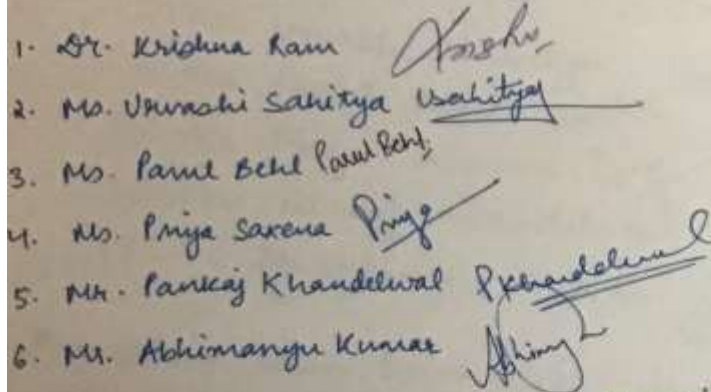 1. Dr. Krishna Ram Krishna
2. Ms. Urvashi Sahitya Usahitya
3. Ms. Parul Behl Parul Behl
4. Ms. Priya Saxena Priya
5. Mr. Pankaj Khandelwal PKhandelwal
6. Mr. Abhimanyu Kumar